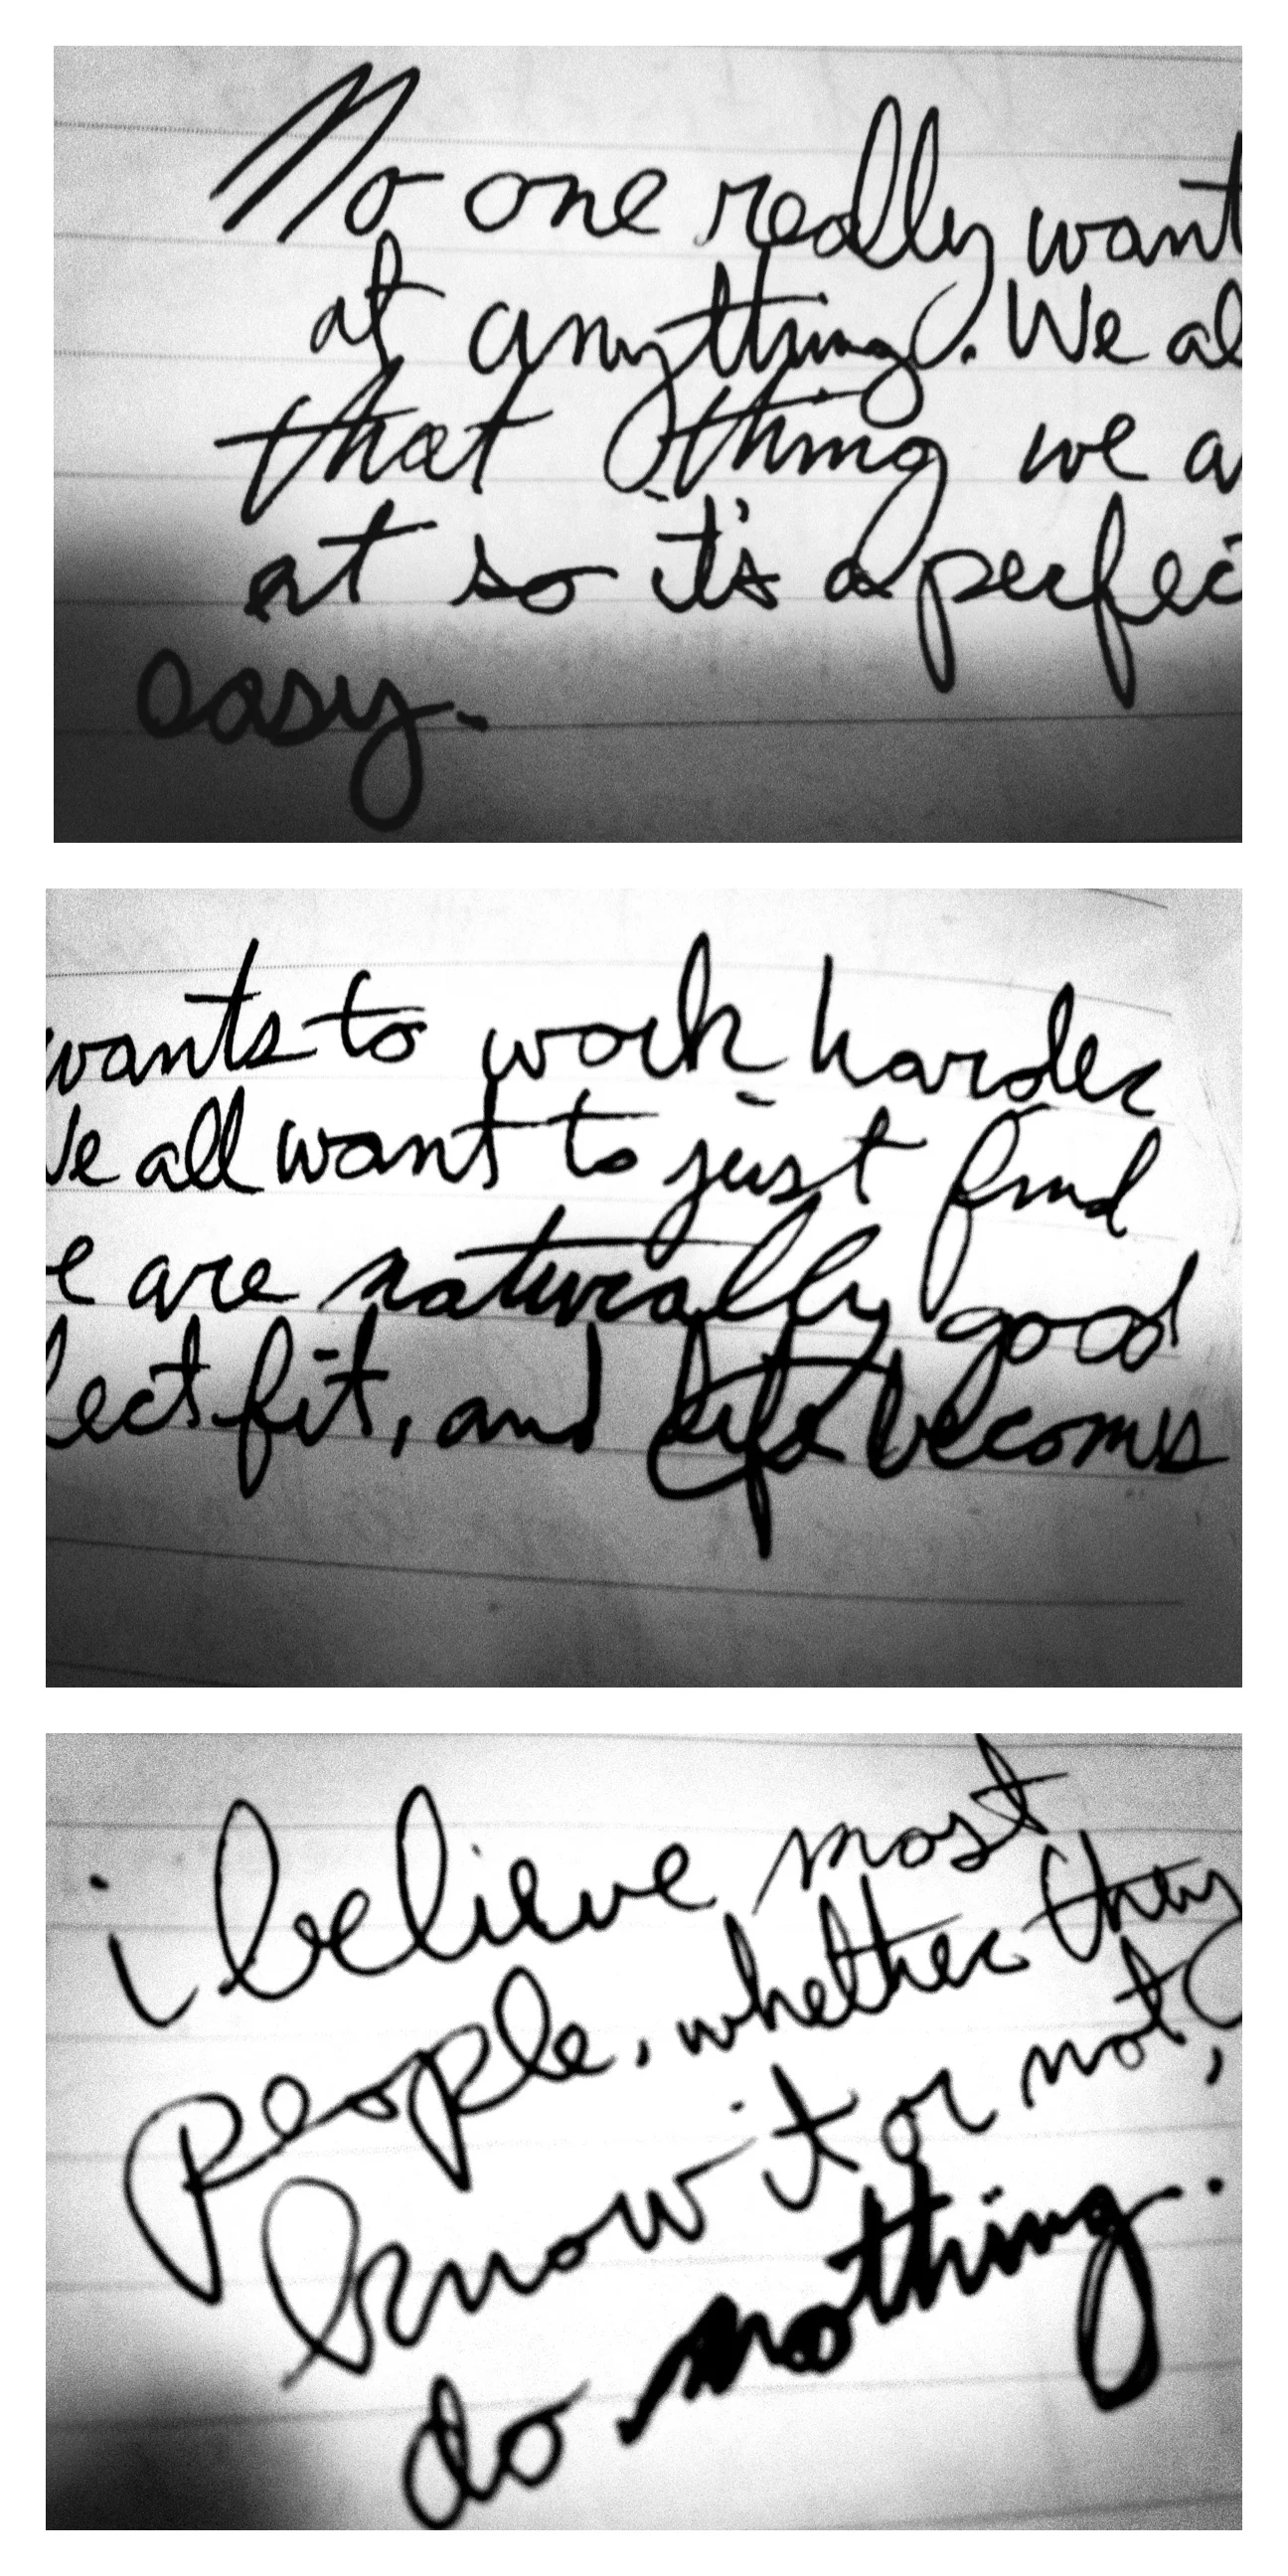 No one really want
at anything. We al
that thing we a
at so it's a perfec
easy.
wants to work harder
We all want to just find
e are naturally good
fect fit, and life becomes
i believe most
people, whether they
know it or not,
do nothing.